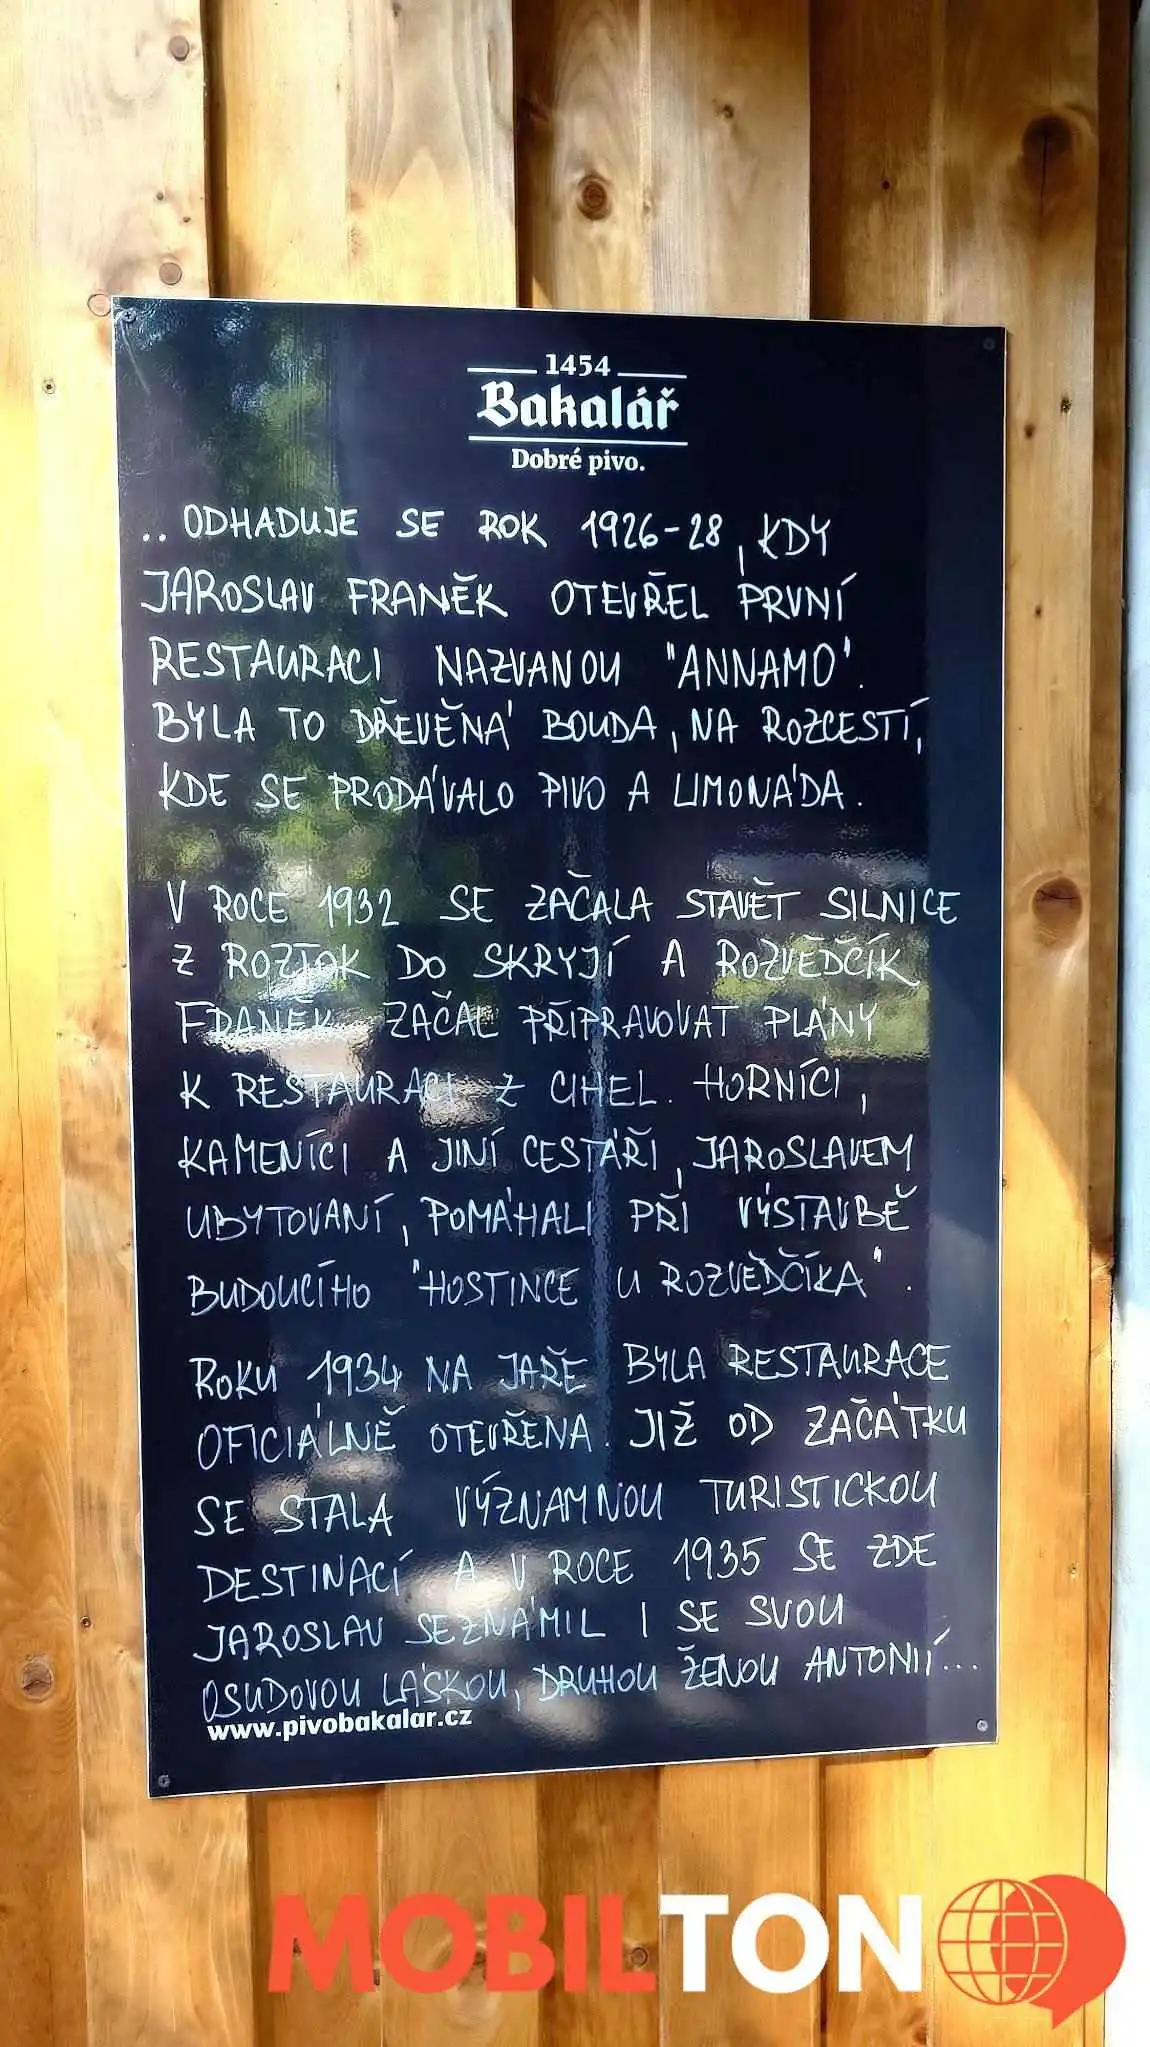 1454
Bakalář
Dobré pivo.
.. ODHADUJE SE ROK 1926-28, KDY
JAROSLAV FRANĚK OTEVŘEL PRVNÍ
RESTAURACI NAZVANOU "ANNAMO".
BYLA TO DŘEVĚNÁ BOUDA, NA ROZCESTÍ,
KDE SE PRODÁVALO PIVO A LIMONÁDA.
V ROCE 1932 SE ZAČALA STAVĚT SILNICE
Z ROZTOK DO SKRYJÍ A ROZVĚDČÍK
FRANĚK ZAČAL PŘIPRAVOVAT PLÁNY
K RESTAURACI Z CIHEL. HORNÍCI,
KAMENÍCI A JINÍ CESTÁŘI, JAROSLAVEM
UBYTOVANÍ, POMÁHALI PŘI VÝSTAVBĚ
BUDOUCÍHO "HOSTINCE U ROZVĚDČÍKA".
ROKU 1934 NA JAŘE BYLA RESTAURACE
OFICIÁLNĚ OTEVŘENA. JIŽ OD ZAČÁTKU
SE STALA VÝZNAMNOU TURISTICKOU
DESTINACÍ A V ROCE 1935 SE ZDE
JAROSLAV SEZNÁMIL I SE SVOU
OSUDOVOU LÁSKOU, DRUHOU ŽENOU ANTONIÍ...
www.pivobakalar.cz
MOBILTON